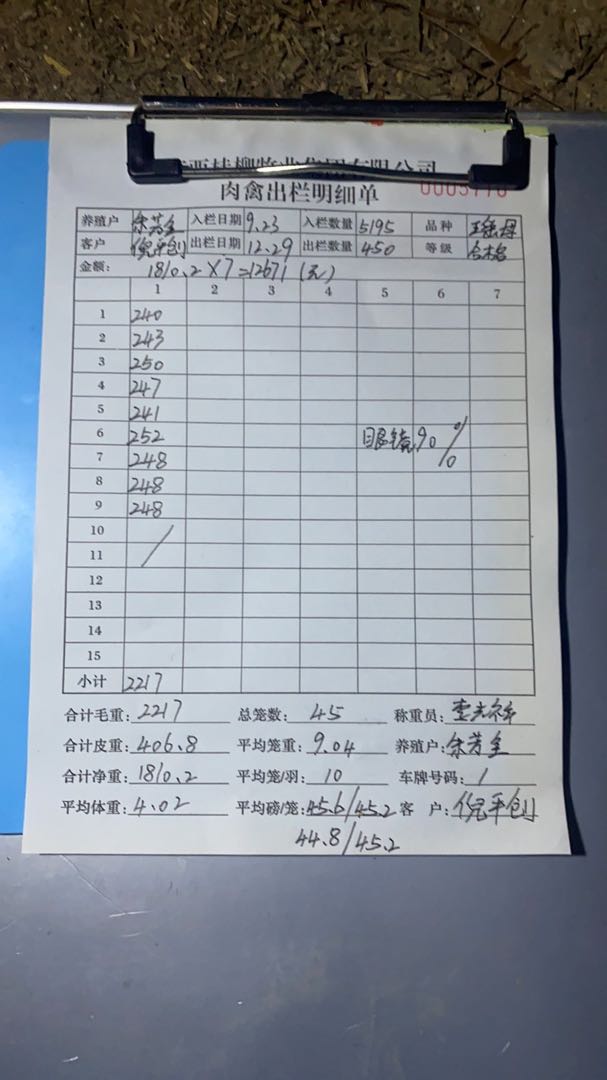 西桂柳牧业集团有限公司
肉禽出栏明细单
养殖户 余芳全 入栏日期 9.23 入栏数量 5195 品种
客户 倪平创 出栏日期 12.29 出栏数量 450 等级 合格
金额： 1810.2×7=12671（元）
1 2 3 4 5 6 7
1 240
2 243
3 250
4 247
5 241
6 252 眼镜90%
7 248
8 248
9 248
10
11
12
13
14
15
小计 2217
合计毛重：2217 总笼数：45 称重员：
合计皮重：406.8 平均笼重：9.04 养殖户：余芳全
合计净重：1810.2 平均笼/羽：10 车牌号码：1
平均体重：4.02 平均磅/笼：45.6/45.2 客 户：倪平创
44.8/45.2